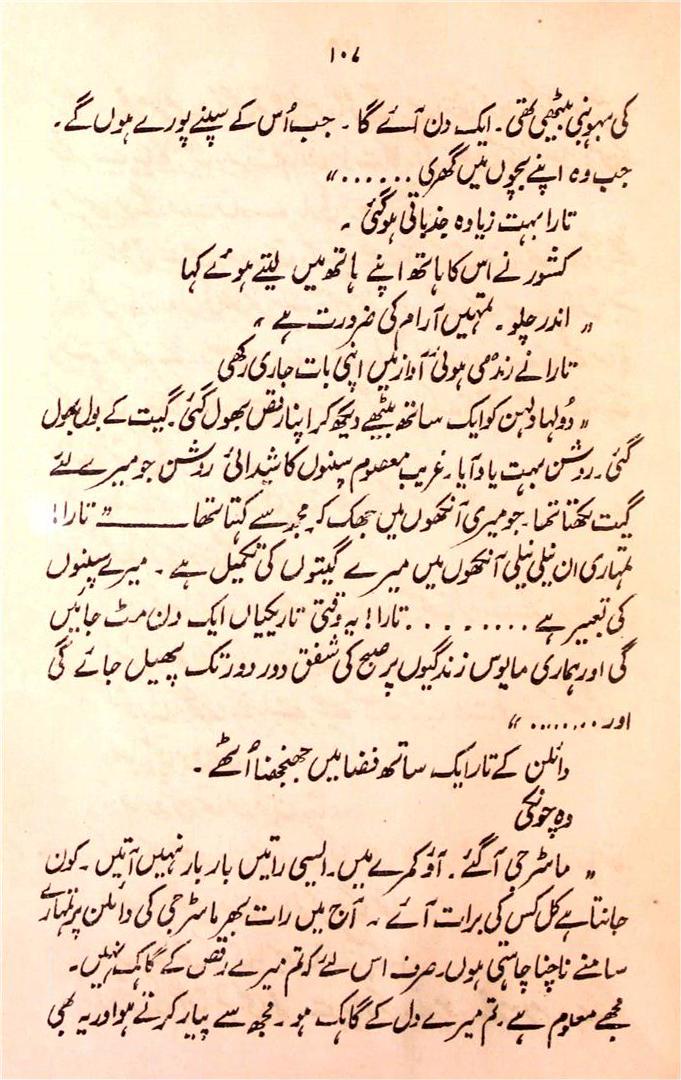 ۱۰۷
کی بہو بنی بیٹھی تھی۔ ایک دن آئے گا۔ جب اُس کے سپنے پورے ہوں گے۔
جب وہ اپنے بچوں میں گھری ......“
تارا بہت زیادہ جذباتی ہو گئی۔
کشور نے اس کا ہاتھ اپنے ہاتھ میں لیتے ہوئے کہا
”اندر چلو۔ تمہیں آرام کی ضرورت ہے“
تارا نے رندھی ہوئی آواز میں اپنی بات جاری رکھی
”دُولہا دلہن کو ایک ساتھ بیٹھے دیکھ کر اپنا رقص بھول گئی۔ گیت کے بول بھول
گئی۔ روشن بہت یاد آیا۔ غریب معصوم سپنوں کا شیدائی روشن جو میرے لئے
گیت لکھتا تھا۔ جو میری آنکھوں میں جھک کر مجھ سے کہتا تھا ——— ”تارا!
تمہاری ان نیلی نیلی آنکھوں میں میرے گیتوں کی تکمیل ہے۔ میرے سپنوں
کی تعبیر ہے ......... تارا! یہ وقتی تاریکیاں ایک دن مٹ جائیں
گی اور ہماری مایوس زندگیوں پر صبح کی شفق دور دور تک پھیل جائے گی
اور ........“
وائلن کے تار ایک ساتھ فضا میں جھنجھنا اُٹھے۔
وہ چونکی
”ماسٹر جی آ گئے۔ آؤ کمرے میں۔ ایسی راتیں بار بار نہیں آتیں۔ کون
جانتا ہے کل کس کی برات آئے۔ آج میں رات بھر ماسٹر جی کی وائلن پر تمہارے
سامنے ناچنا چاہتی ہوں۔ صرف اس لئے کہ تم میرے رقص کے گاہک نہیں۔
مجھے معلوم ہے۔ تم میرے دل کے گاہک ہو۔ مجھ سے پیار کرتے ہو اور یہ بھی